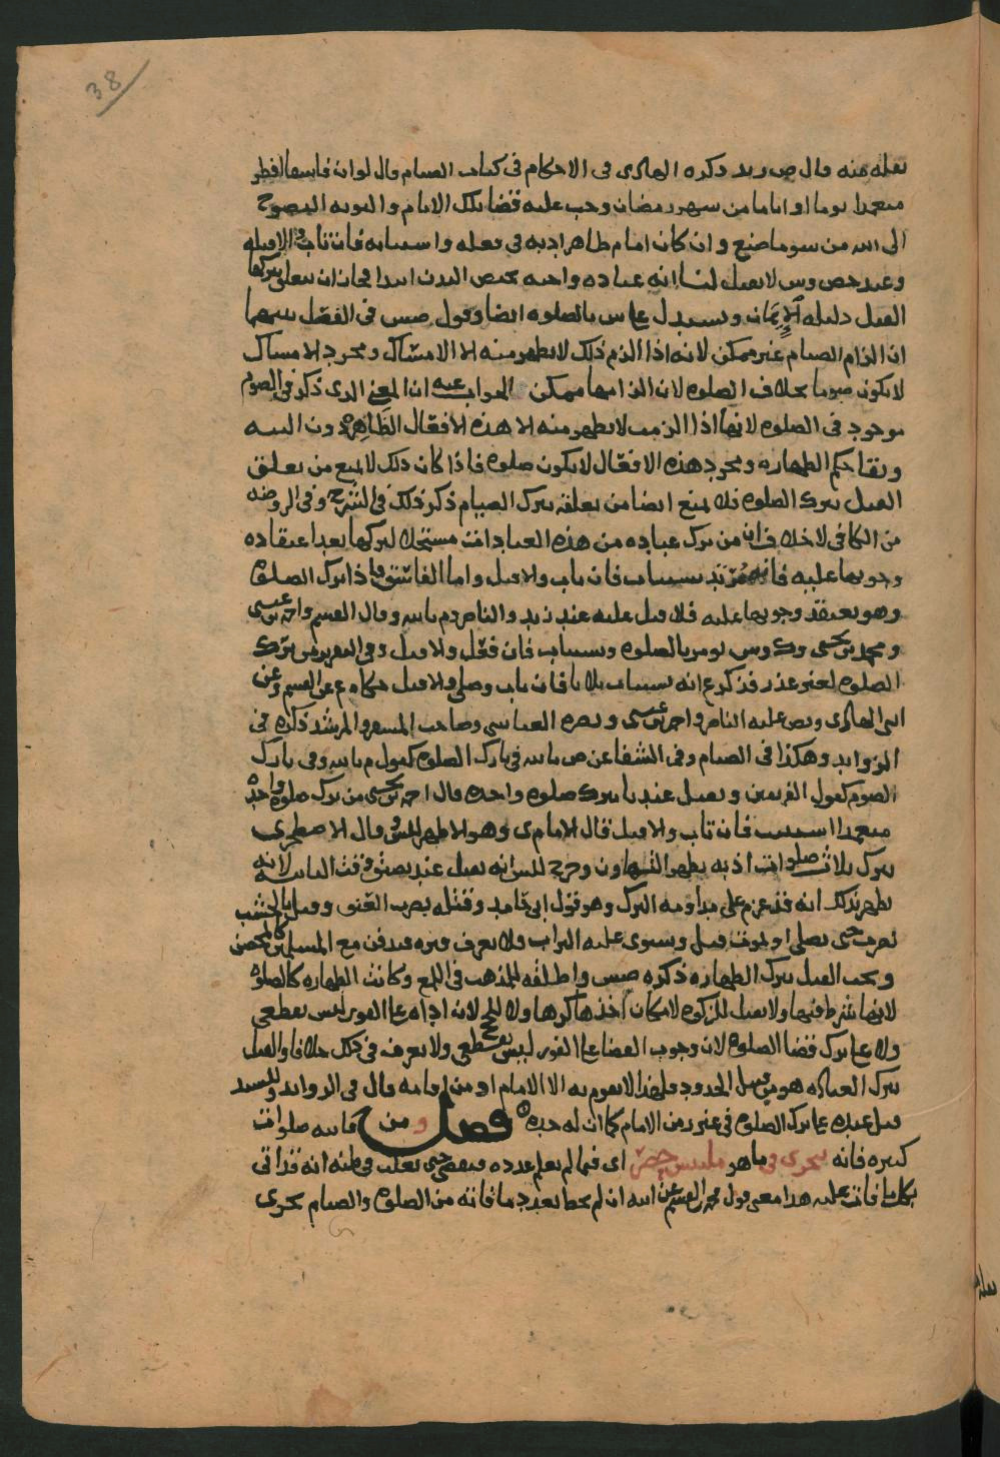 38
فعله منه قال ص وبد ذكره الهادى فى الاحكام فى كتاب الصيام قال لو ان فاسقا افطر
متعمدا يوما او اياما من شهر رمضان وجب عليه قضا تلك الايام والتوبه النصوح
الى الله من سو ما صنع وان كان امام ظاهر ادبه فى فعله واستتابه فان تاب والا قتله
وعند حص وس لا يقتل لنا انه عباده واجبه تختص البدن ابدا فجاز ان يتعلق بتركها
القتل دليله الإيمان ويستدل على س بالصلوه ايضا وقول صس فى الفصل بينهما
ان الزام الصيام غير ممكن لانه اذا الزم ذلك لا يظهر منه الا الامساك ومجرد الامساك
لا يكون صوما بخلاف الصلوه لان الزامها ممكن الجواب عنه ان المعنى الذى ذكر فى الصوم
موجود فى الصلوه لانها اذا الزمت لا يظهر منه الا هذه الافعال الظاهره دون النيه
وبقا حكم الطهاره ومجرد هذه الافعال لا يكون صلوه فاذا كان ذلك لا يمنع من تعلق
القتل بترك الصلوه فلا يمنع ايضا من تعلقه بترك الصيام ذكر ذلك فى الشرح وفى الروضه
من الكافى لا خلاف ان من ترك عباده من هذه العبادات مستحلا لتركها بعد اعتقاده
وجوبها عليه فانه مرتد يستتاب فان تاب والا قتل واما الفاسق واذا ترك الصلوه
وهو يعتقد وجوبها عليه فلا قتل عليه عند زيد والناصر وم بالله وقال القسم واحمد بن عيسى
ومحمد بن يحيى وك وس يومر بالصلوه ويستتاب فان فعل والا قتل وفى التقرير من ترك
الصلوه لغير عذر فذكر ع انه يستتاب ثلاثا فان تاب وصلى والا قتل حكاه ع عن القسم وعن
ابى الهادى ونص عليه الناصر واحمد بن عيسى ونصره العباسى وصاحب المسفر والمرشد ذكره فى
الزوايد وهكذا فى الصيام وفى الشفا عن ص بالله فى تارك الصلوه كقول م بالله وفى تارك
الصوم كقول الفريقين ويقتل عندنا بترك صلوه واحده قال احمد بن يحيى من ترك صلوه واحده
متعمدا استتيب فان تاب والا قتل قال الامام ى وهو الاظهر لمذهب وش وقال الاصطخرى
بترك ثلاث صلوات اذ به يظهر التهاون وخرج لش انه يقتل عند يضيق وقت الثانيه لانه
يظهر بذلك انه قد عزم على مداومه الترك وهو قول ابى حامد وقتله بضرب العنق وقيل بالخشب
يضرب حتى يصلى او يموت قيل ويسوى عليه التراب ولا يعرف قبره فيدفن مع المسلمين كالمحصن
ويجب القتل بترك الطهاره ذكره صس واطلقه للمذهب فى اللمع وكانت الطهاره كالصلوه
لانها شرط فيها ولا يقتل للزكوه لامكان اخذها كرها ولا للحج لان اداه على الفور ليس بقطعى
ولا على ترك قضا الصلوه لان وجوب القضا على الفور ليس بقطعى ولا يعرف فى ذلك خلافا والقتل
بترك العباده هو من قبيل الحدود فلهذا لا يقوم به الا الامام او من اقامه قال فى الزوايد وللسيد
قتل عبده على ترك الصلوه فى غير زمن الامام كما ان له حده فصل ومن فاته صلوات
كثيره فانه يتحرى فى ما هو ملتبس حصره اى فيما لم يعلم عدده فيقضى حتى يغلب فى ظنه انه قد اتى
بكل ما فات عليه هذا معنى قول محمد بن القسم عن ابيه ان لم يحط بعدد ما فاته من الصلوه والصيام تحرى